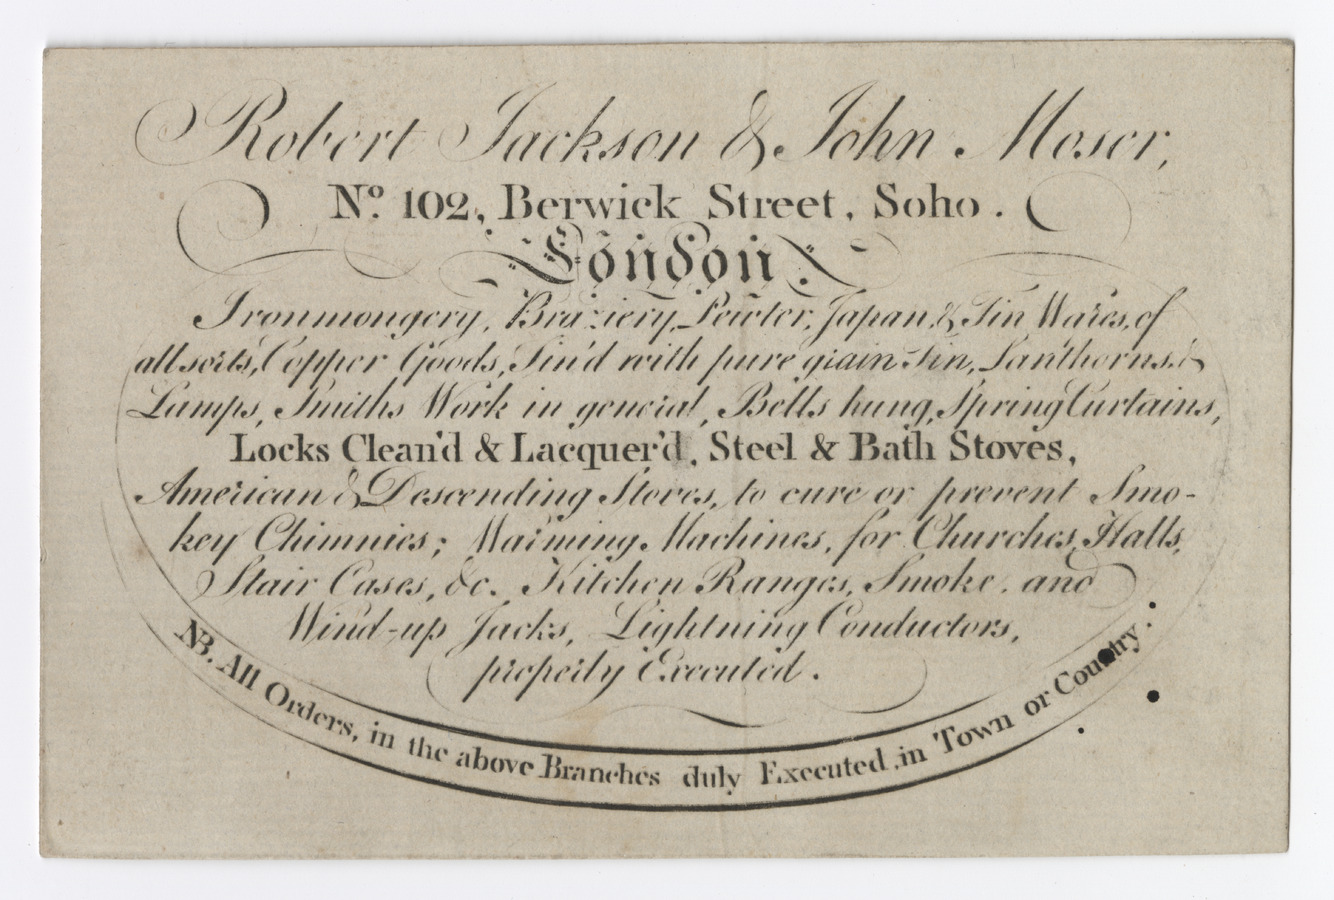 Robert Jackson & John Moser,
No. 102, Berwick Street, Soho.
London.
Ironmongery, Braziery, Pewter, Japan & Tin Wares, of
all sorts, Copper Goods, Tin'd with pure grain Tin, Lanthorns, &
Lamps, Smiths Work in general, Bells hung, Spring Curtains,
Locks Clean'd & Lacquer'd, Steel & Bath Stoves,
American & Descending Stoves, to cure or prevent Smo-
key Chimnies; Warming Machines, for Churches, Halls,
Stair Cases, &c. Kitchen Ranges, Smoke, and
Wind-up Jacks, Lightning Conductors,
properly Executed.
NB. All Orders, in the above Branches duly Executed, in Town or Country.